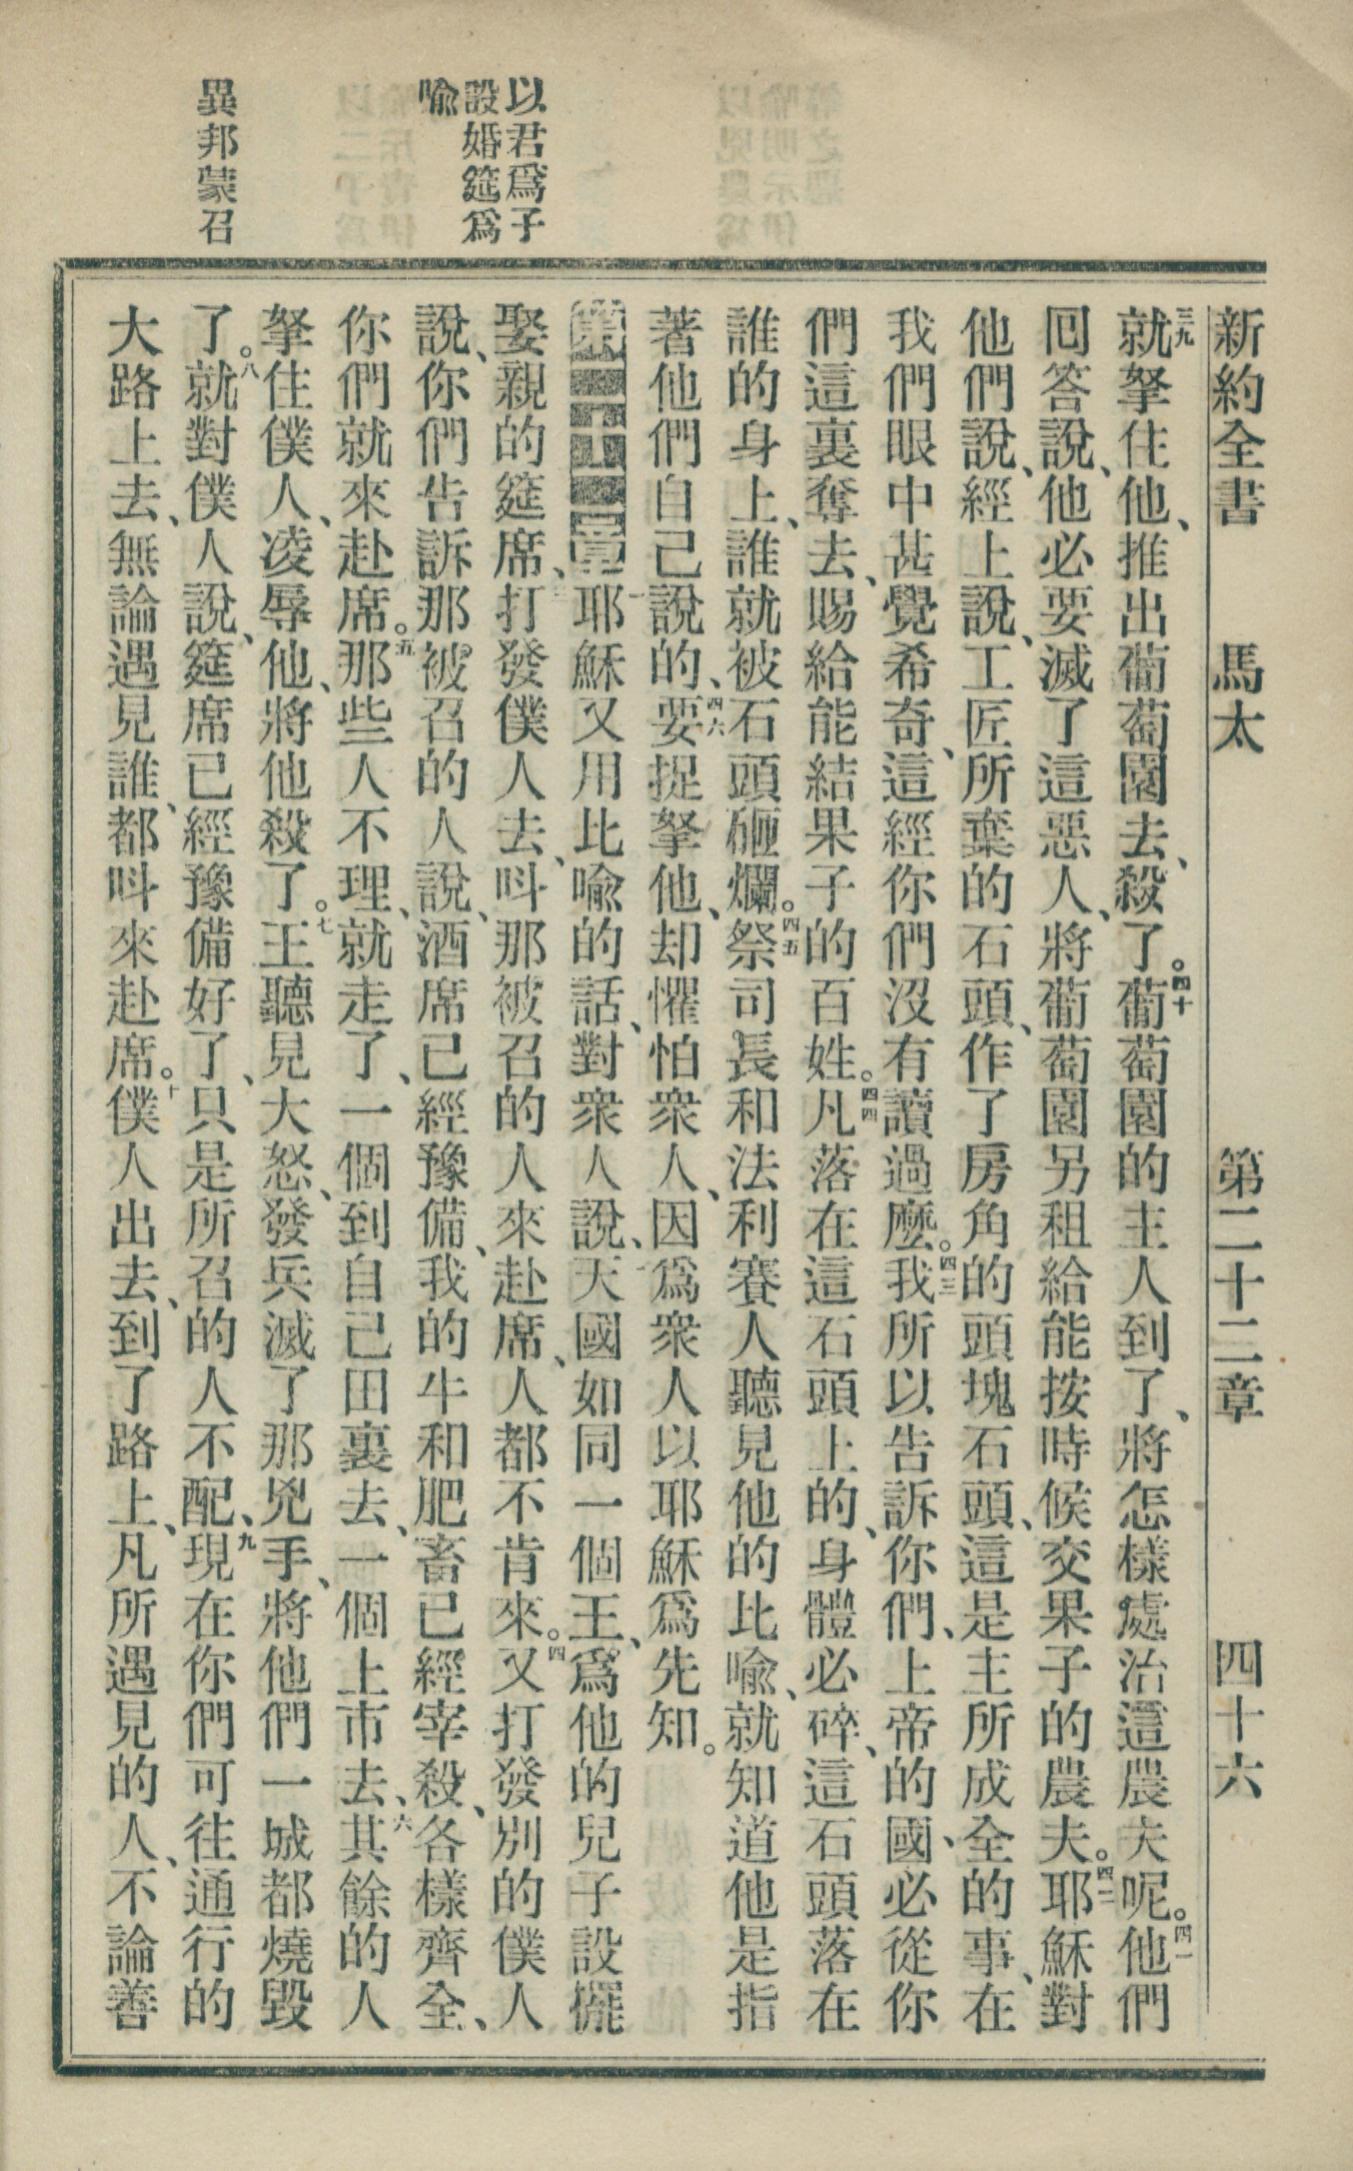 新約全書 馬太 第二十二章 四十六
三九就拏住他、推出葡萄園去、殺了。四十葡萄園的主人到了、將怎樣處治這農夫呢。四一他們
回答說、他必要滅了這惡人、將葡萄園另租給能按時候交果子的農夫。四二耶穌對
他們說、經上說、工匠所棄的石頭、作了房角的頭塊石頭、這是主所成全的事、在
我們眼中甚覺希奇、這經你們沒有讀過麼。四三我所以告訴你們、上帝的國、必從你
們這裏奪去、賜給能結果子的百姓。四四凡落在這石頭上的、身體必碎、這石頭落在
誰的身上、誰就被石頭砸爛。四五祭司長和法利賽人聽見他的比喻、就知道他是指
著他們自己說的、四六要捉拏他、却懼怕衆人、因爲衆人以耶穌爲先知。
第二十二章 一耶穌又用比喻的話、對衆人說、二天國如同一個王、爲他的兒子設擺
娶親的筵席、三打發僕人去、呌那被召的人來赴席、人都不肯來。四又打發別的僕人
說、你們告訴那被召的人說、酒席已經豫備、我的牛和肥畜已經宰殺、各樣齊全、
你們就來赴席。五那些人不理、就走了、一個到自己田裏去、一個上市去、六其餘的人
拏住僕人、凌辱他、將他殺了。七王聽見大怒、發兵滅了那兇手、將他們一城都燒毀
了。八就對僕人說、筵席已經豫備好了、只是所召的人不配、九現在你們可往通行的
大路上去、無論遇見誰、都呌來赴席。十僕人出去、到了路上、凡所遇見的人、不論善
以君爲子
設婚筵爲
喻
異邦蒙召